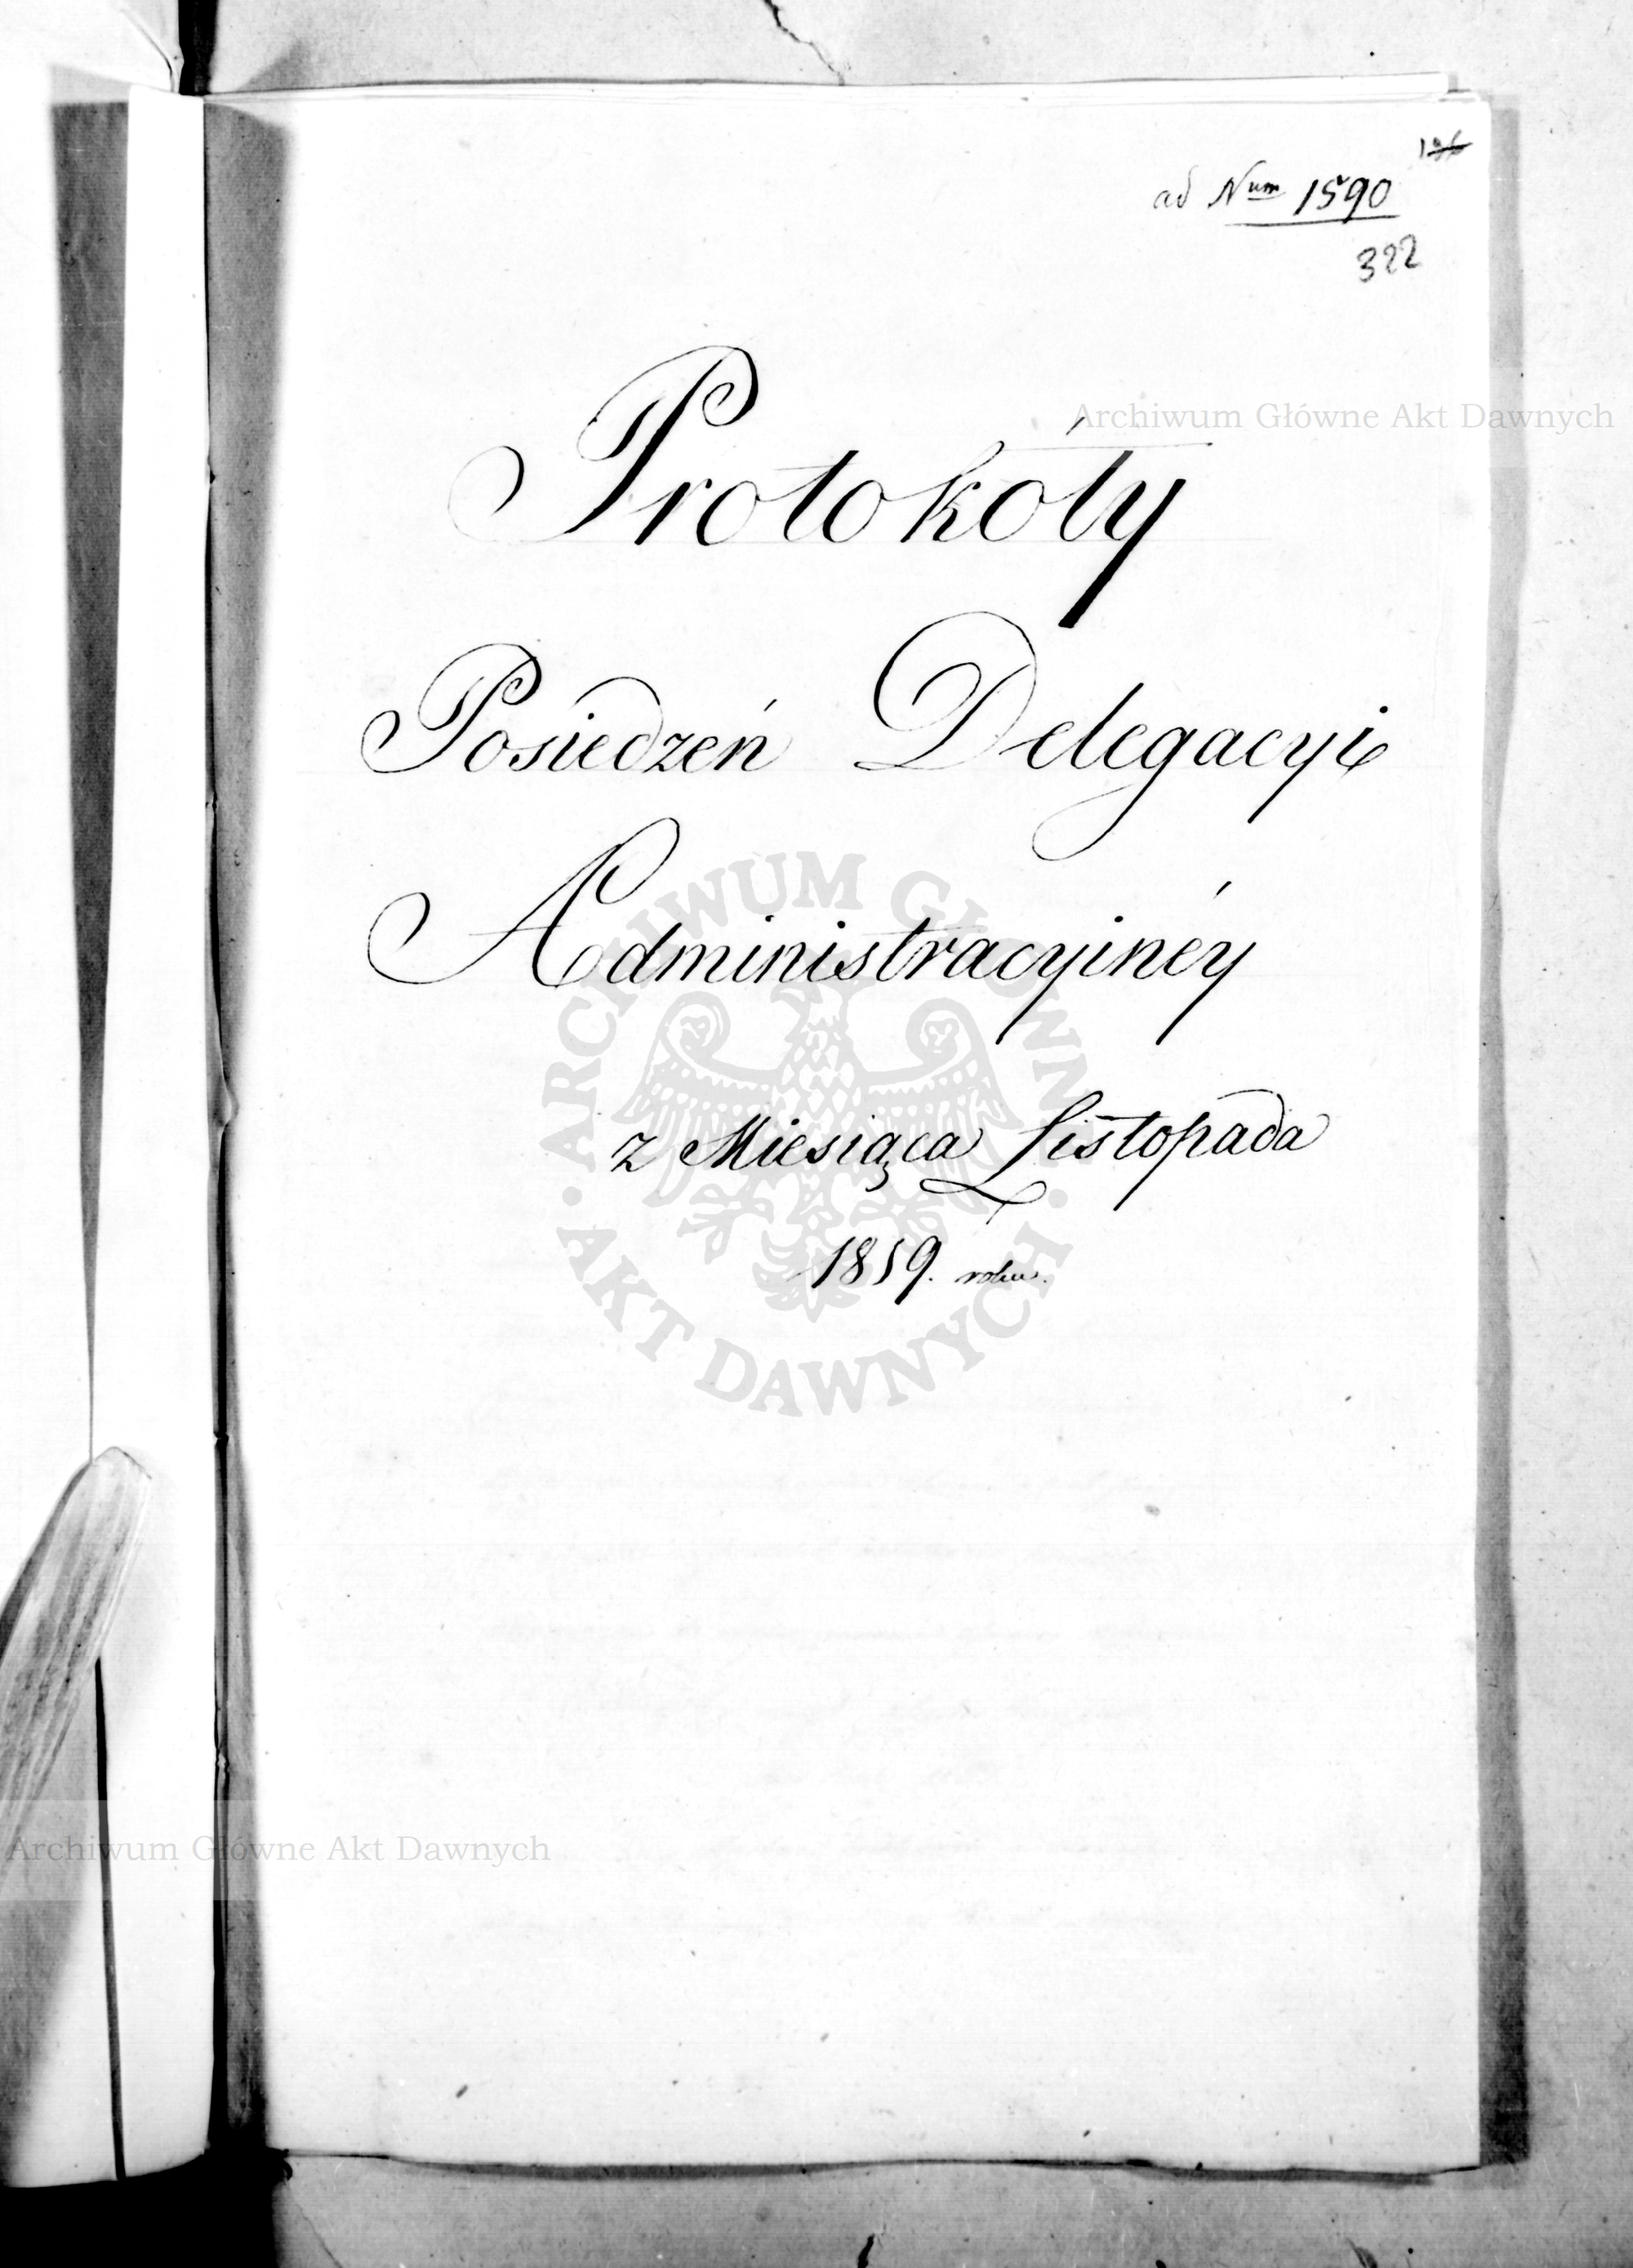 ad Num 1590
322
Archiwum Główne Akt Dawnych
Protokóły
Posiedzeń Delegacyi
Administracyinéy
z Miesiąca Listopada
1819. roku.
ARCHIWUM GŁÓWNE
AKT DAWNYCH
Archiwum Główne Akt Dawnych